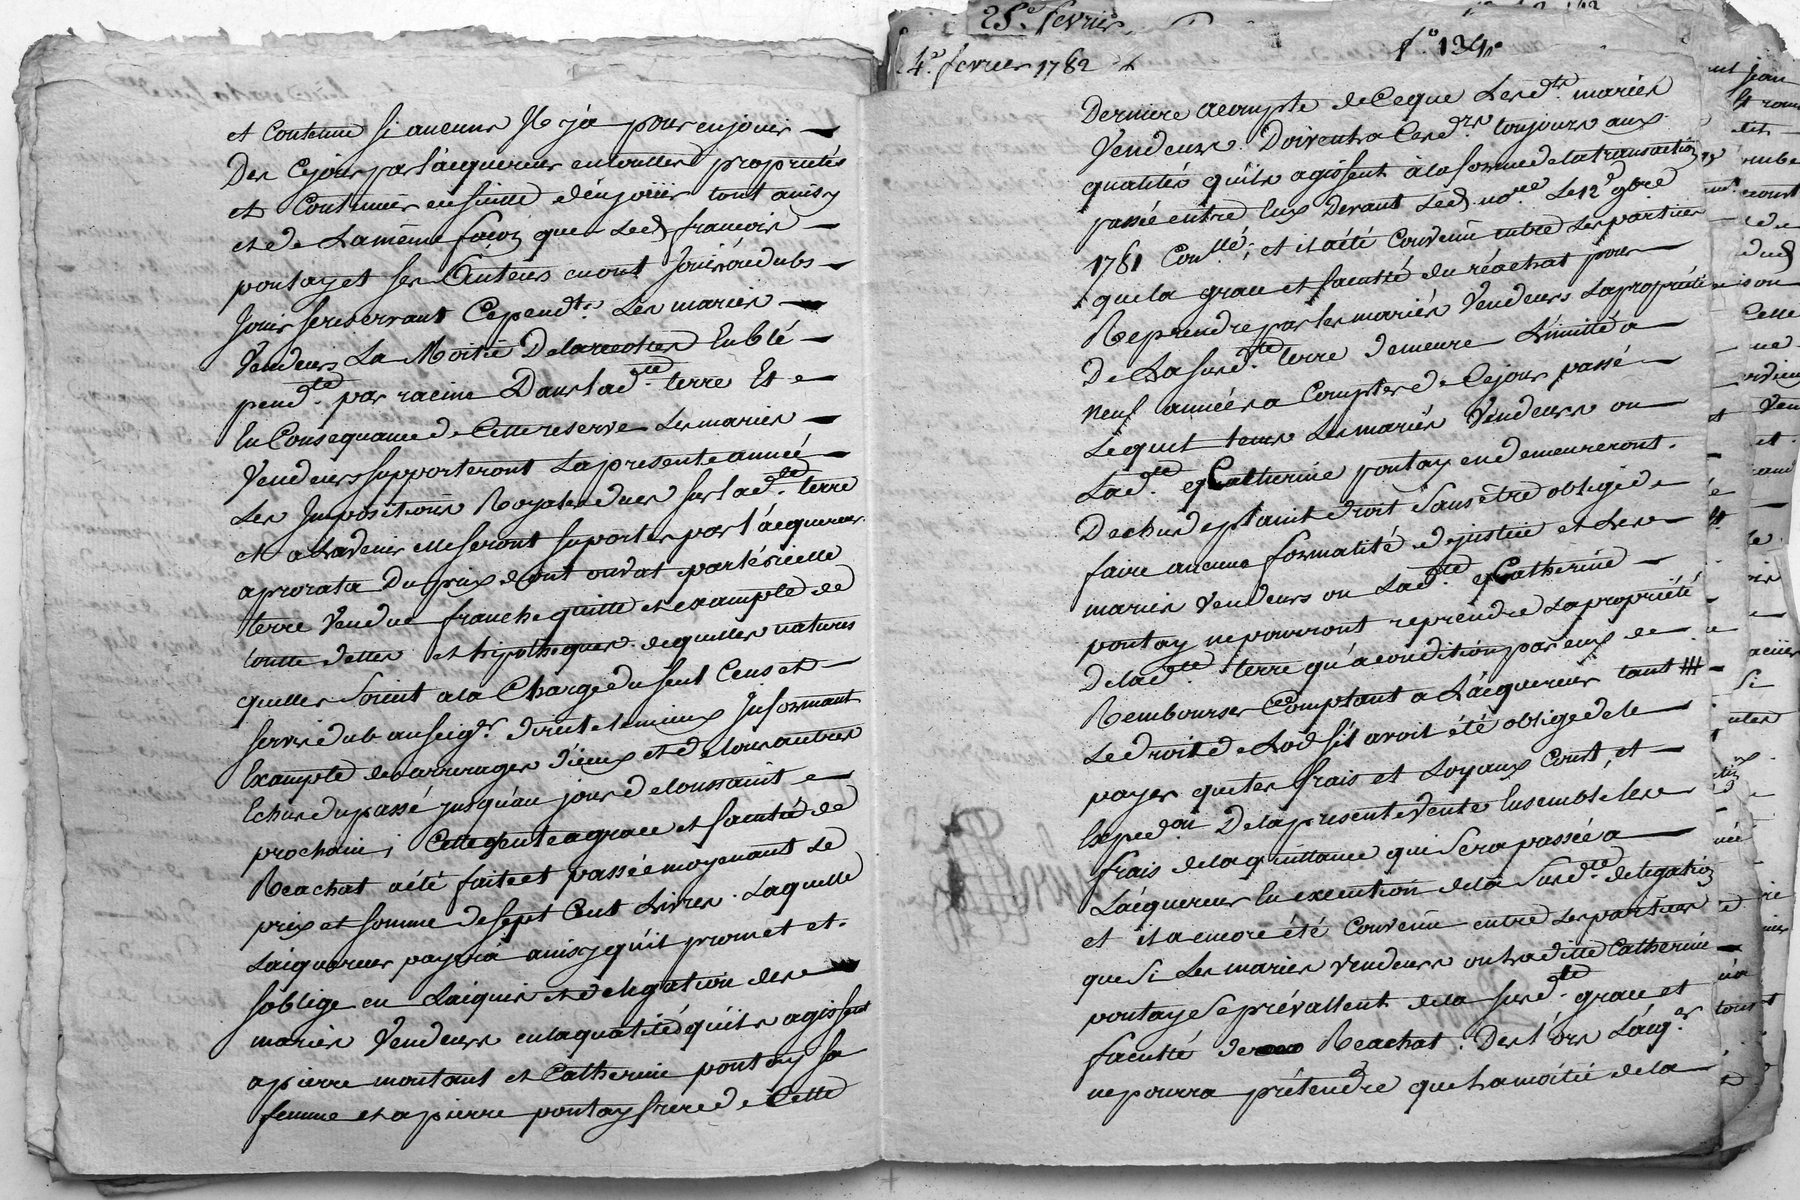 25.e fevrier
4.e fevrier 1782
f.o 134.
et Contenue si aucune Il y a pour en jouir
Des Cejour par l'acquereur en toutte proprietés
et Continuer en suitte d'en jouir tout ainsy
et de La même façon que Led. francois
pontay et ses Auteurs en ont Joui ou dub
Jouir se reservant Cepend.t Les mariés
Vendeurs La Moitié De la recolte En blé
pend.te par racine Dans lad.te terre Et
En Consequance de Cette reserve Les mariés
Vendeurs supporteront La presente année
Les Impositions Royales dues sur lad.te terre
et a Lavenir elle seront suportés par l'acquereur
aprorata Du prix dont
terre Vendue franche quitte et exampte de
toutte dettes et hipotheques de quelles natures
quelles soient a la Charge du seul Cens et
servis dub au seig.r direct le mieux Informant
Exampte des arrerages d'iceux et de tous autres
Echus du passé jusqu'au jour de toussaint
prochain ; Cette vente a grace et faculté de
Reachat a été faite et passée moyenant Le
prix et somme de sept Cent Livres Laquelle
Laiquereur payera ainsy qu'il promet et
s'oblige en Laiquit et délégation des
mariés Vendeurs en la qualité qu'ils agissent
a pierre montant et Catherine pontay sa
femme et a pierre pontay frere de Cette
Derniere acompte de Ceque Lesd.ts mariés
Vendeurs Doivent a Cesd.rs toujours aux
qualités qu'ils agissent à la forme de la transaction
passée entre Eux Devant Led. no.re Le 12.e 9bre
1781 Con.llé ; et il a été Convenu entre Les parties
que la grace et faculté du réachat pour
Reprendre par les mariés Vendeurs La propriété
De La susd.te terre demeure Limitté a
neuf années a Compter de Cejour passé
Lequel tems Les mariés Vendeurs ou
Lad.te Catherine pontay en demeureront
Dechus de plaint droit Sans être obligé de
faire aucune formalité de justice et Les
mariés Vendeurs ou Lad.te Catherine
pontay ne pourront reprendre La propriété
De lad.te terre qu'a condition par eux de
Rembourser Comptant a L'acquereur tant
Le droit de Lod s'il avoit été obligé de le
payer que les frais et Loyaux Cout, et
Exped.on De la presente Vente Ensemble les
frais de la quittance qui sera passée a
L'acquereur En execution de la Susd.te delegation
et il a encore été Convenu entre Les parties
que Si Les mariés Vendeurs ou Laditte Catherine
pontay se prévallent de la susd.te grace et
faculté de Reachat. Des L'ors L'acq.r
ne pourra prétendre que La moitié de la